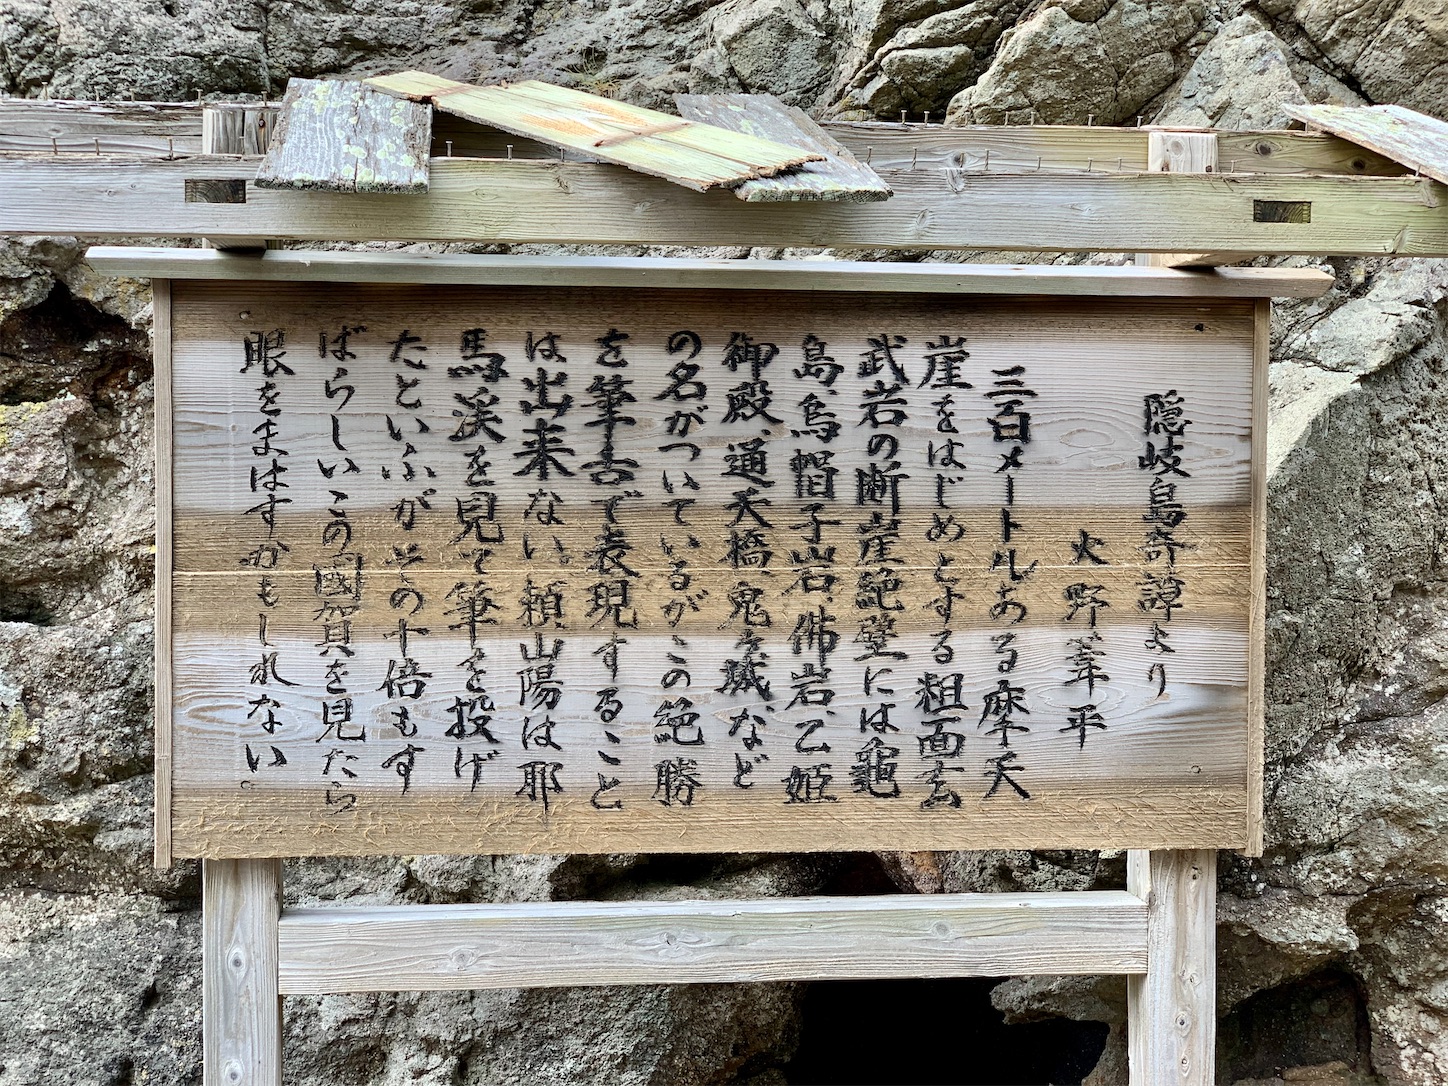 隠岐島奇譚より
火野葦平
三百メートルある摩天
崖をはじめとする粗面玄
武岩の断崖絶壁には龜
島、烏帽子岩、佛岩、乙姫
御殿、通天橋、鬼ヶ城、など
の名がついているがこの絶勝
を筆舌で表現すること
は出来ない。頼山陽は耶
馬渓を見て筆を投げ
たといふがその十倍もす
ばらしいこの國賀を見たら
眼をまはすかもしれない。